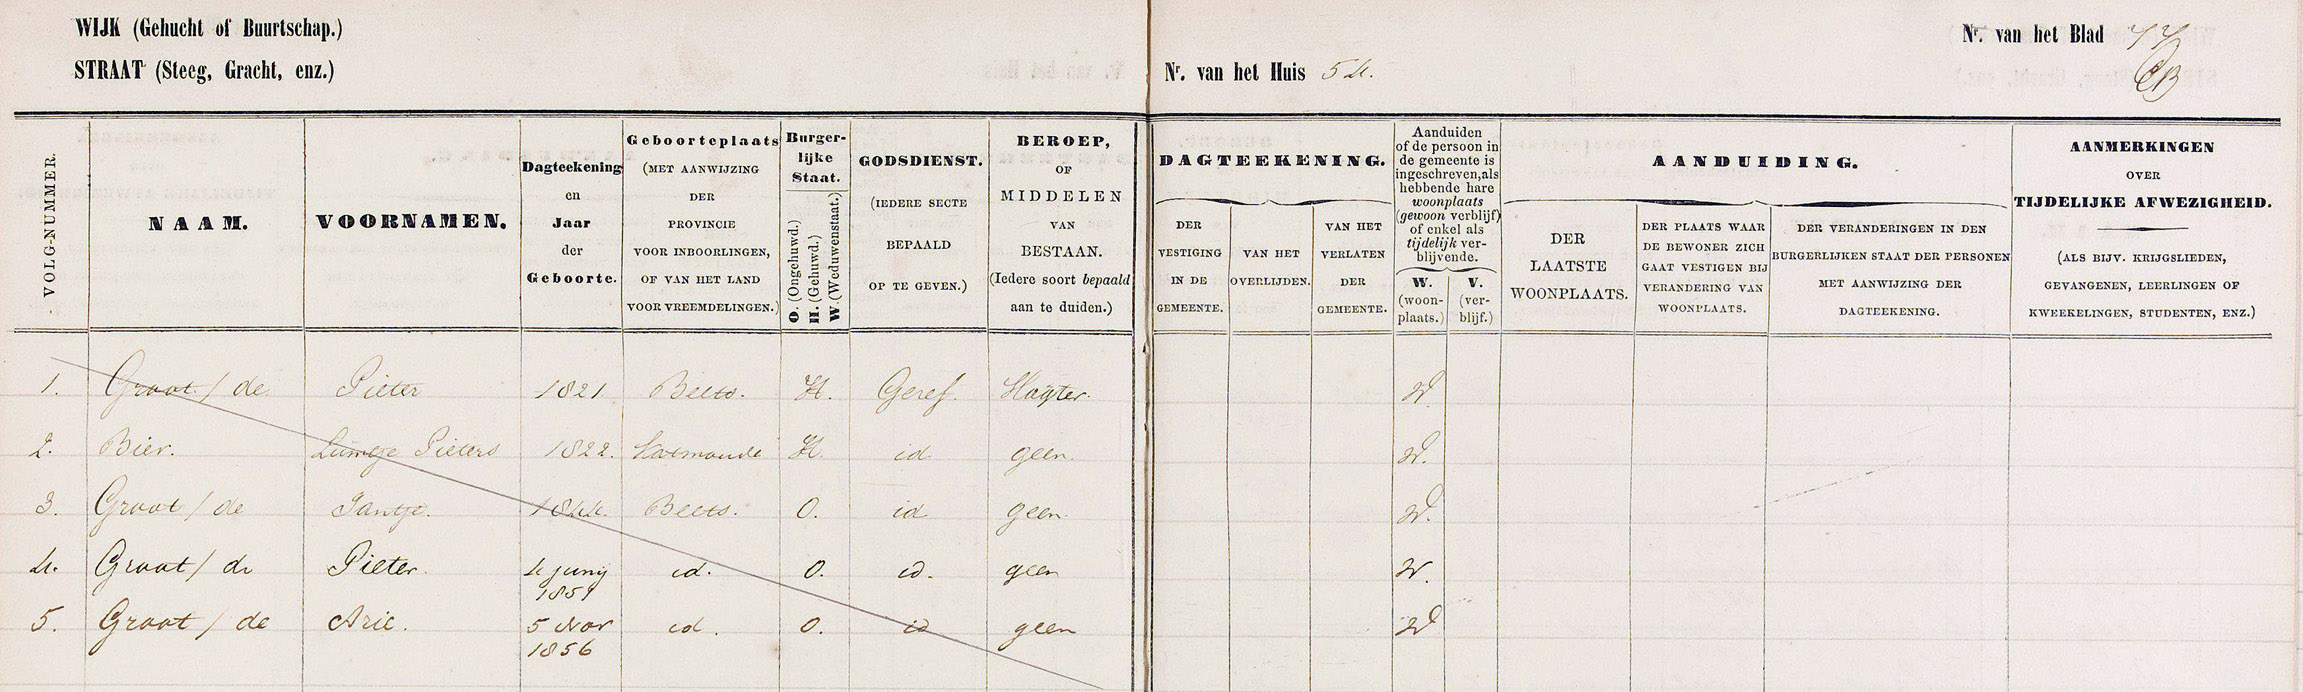 WIJK (Gehucht of Buurtschap.)
Nr. van het Blad 77
STRAAT (Steeg, Gracht, enz.)
Nr. van het Huis 54.
VOLG-NUMMER.
NAAM.
VOORNAMEN.
Dagteekening
en
Jaar
der
Geboorte.
Geboorteplaats
(MET AANWIJZING
DER
PROVINCIE
VOOR INBOORLINGEN,
OF VAN HET LAND
VOOR VREEMDELINGEN.)
Burger-
lijke
Staat.
O. (Ongehuwd.)
H. (Gehuwd.)
W. (Weduwenstaat.)
GODSDIENST.
(IEDERE SECTE
BEPAALD
OP TE GEVEN.)
BEROEP,
OF
MIDDELEN
VAN
BESTAAN.
(Iedere soort bepaald
aan te duiden.)
DAGTEEKENING.
DER
VESTIGING
IN DE
GEMEENTE.
VAN HET
OVERLIJDEN.
VAN HET
VERLATEN
DER
GEMEENTE.
Aanduiden
of de persoon in
de gemeente is
ingeschreven, als
hebbende hare
woonplaats
(gewoon verblijf)
of enkel als
tijdelijk ver-
blijvende.
W.
(woon-
plaats.)
V.
(ver-
blijf.)
AANDUIDING.
DER
LAATSTE
WOONPLAATS.
DER PLAATS WAAR
DE BEWONER ZICH
GAAT VESTIGEN BIJ
VERANDERING VAN
WOONPLAATS.
DER VERANDERINGEN IN DEN
BURGERLIJKEN STAAT DER PERSONEN
MET AANWIJZING DER
DAGTEEKENING.
AANMERKINGEN
OVER
TIJDELIJKE AFWEZIGHEID.
(ALS BIJV. KRIJGSLIEDEN,
GEVANGENEN, LEERLINGEN OF
KWEEKELINGEN, STUDENTEN, ENZ.)
1. Groot / de Pieter 1821 Beets. H. Geref. W.
2. Bier. Pieters 1822. H. id geen W.
3. Groot / de Jantje. 1844. Beets. O. id geen W.
4. Groot / de Pieter. 4 juny 1851 id. O. id. geen W.
5. Groot / de Arie. 5 Nov 1856 id. O. id geen W